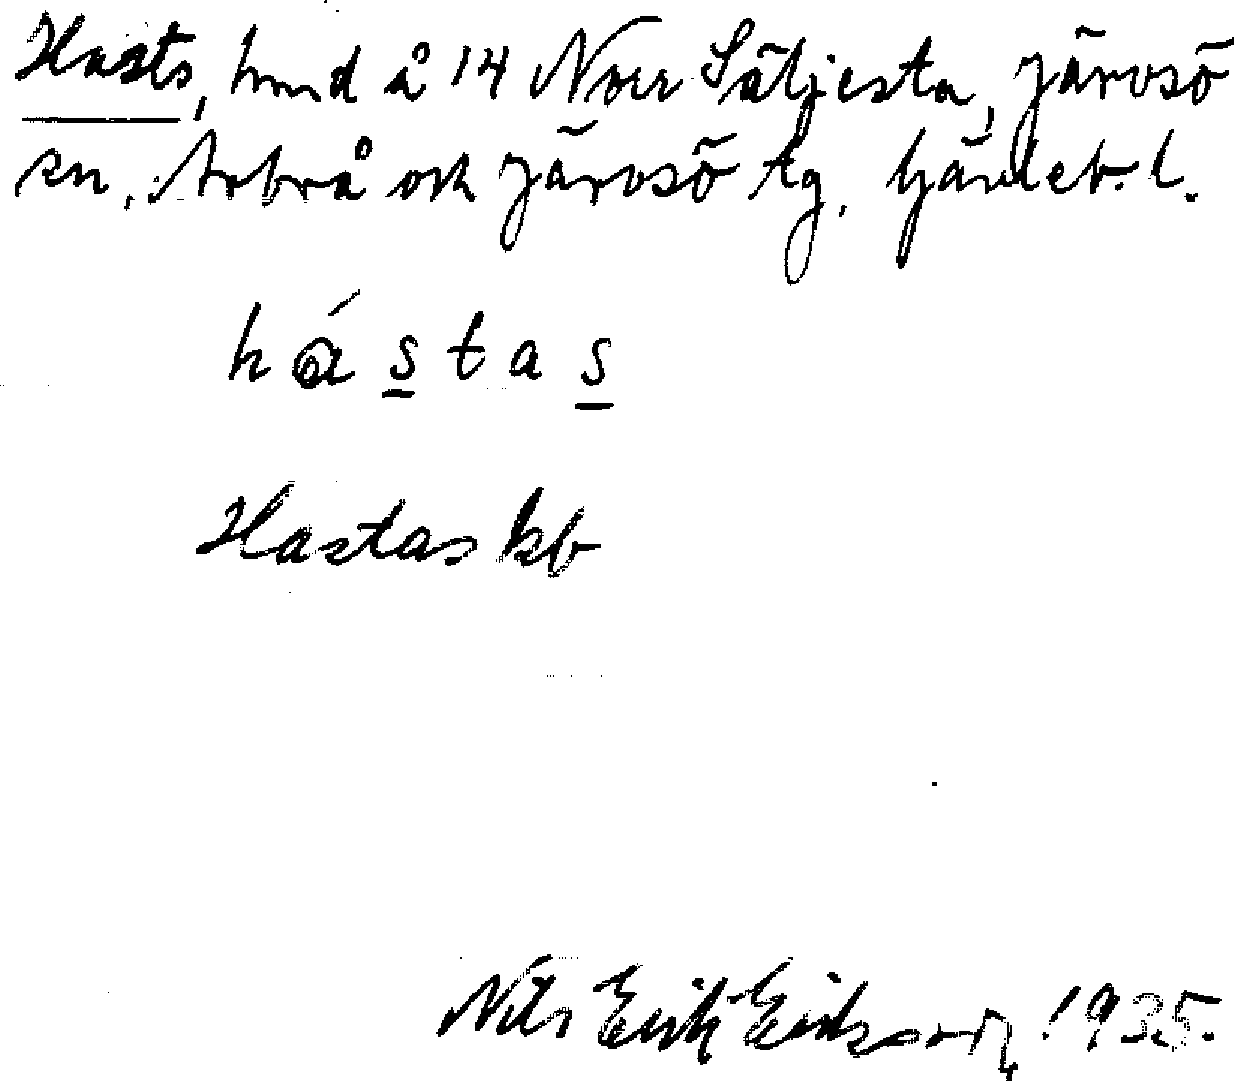 Hasts, hmd å 14 Norr Säljesta, Järvsö
sn, Arbrå och Järvsö tg, Gävleb. l.
hástas
Hastas kb
Nils Erik Eriksson, 1935.